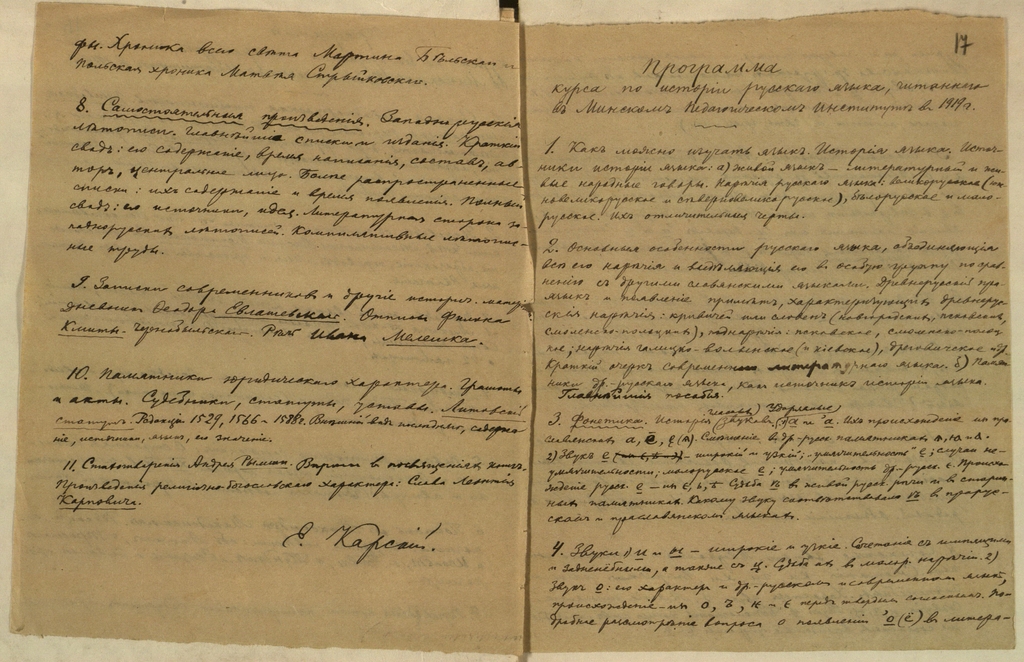 фы. Хроника всего свѣта Мартина Бѣльскаго и
польская хроника Матвѣя Стрыйковскаго.
8. Самостоятельныя произведенія. Западно-русскія
лѣтописи. Главнѣйшіе списки и изданія. Краткій
сводъ: его содержаніе, время написанія, составъ, ав-
торъ, центральное лицо. Болѣе распространенные
списки: ихъ содержаніе и время появленія. Полный
сводъ: его источники, идея. Литературная сторона за-
паднорусскихъ лѣтописей. Компилятивные лѣтопис-
ные труды.
9. Записки современниковъ и другіе историч. матер.
Дневникъ Ѳеодора Евлашевскаго. Отписы Филона
Кмиты Чернобыльского. Рѣчь Ивана Мелешка.
10. Памятники юридическаго характера. Грамоты
и акты. Судебники, статуты, уставы. Литовскій
статутъ. Редакціи 1529, 1566 и 1588 г. Внѣшній видъ послѣдняго, содержа-
ніе, источники, языкъ, его значеніе.
11. Стихотворенія Андрея Рымши. Вирши въ посвященіяхъ книгъ.
Произведенія религіозно-богословскаго характера: Слова Леонтія
Карповича.
Е. Карскій.
17
Программа
курса по исторіи русскаго языка, читаннаго
въ Минскомъ Педагогическомъ Институтѣ въ 1919 г.
1. Какъ можно изучать языкъ. Исторія языка. Источ-
ники исторіи языка: а) живой языкъ — литературный и жи-
вые народные говоры. Нарѣчія русскаго языка: великорусское (юж-
новеликорусское и сѣверновеликорусское), бѣлорусское и мало-
русское. Ихъ отличительныя черты.
2. Основныя особенности русскаго языка, объединяющія
всѣ его нарѣчія и выдѣляющія его въ особую группу по срав-
ненію съ другими славянскими языками. Древнерусскій пра-
языкъ и появленіе примѣтъ, характеризующихъ древнерус-
скія нарѣчія: кривичей или словенъ (новгородскихъ, псковскихъ,
смоленско-полоцкихъ), поднарѣчія: псковское, смоленско-полоц-
кое; нарѣчія галицко-волынское (и кіевское), дреговичское и др.
Краткій очеркъ современнаго литературнаго языка. б) Памят-
ники др.-русскаго языка, какъ источникъ исторіи языка.
Главнѣйшія пособія.
3. Фонетика. Исторія гласныхъ звуковъ. Удареніе. 1) а и 'а. Ихъ происхожденіе изъ пра-
славянскихъ а, ē, ę (ѧ). Смѣшеніе въ др.-русс. памятникахъ ѧ, ꙗ и а.
2) Звукъ е широкій и узкій; „умягчительность" е; случаи не-
умягчительности, малорусское е; умягчительность др.-русс. е. Происхо-
жденіе русс. е — изъ е, ь, ѣ. Судьба ѣ въ живой русс. рѣчи и въ старин-
ныхъ памятникахъ. Какому звуку соотвѣтствовало ѣ въ прарус-
скомъ и праславянскомъ языкахъ.
4. Звуки 1) и и ы — широкіе и узкіе. Сочетаніе съ шипящими
и задненёбными, а также съ ц. Судьба ихъ въ малор. нарѣчіи. 2)
Звукъ о: его характеръ въ др.-русскомъ и современномъ языкѣ,
происхожденіе — изъ о, ъ, ь — е передъ твердыми согласными. По-
дробное разсмотрѣніе вопроса о появленіи 'о (ё) въ литера-